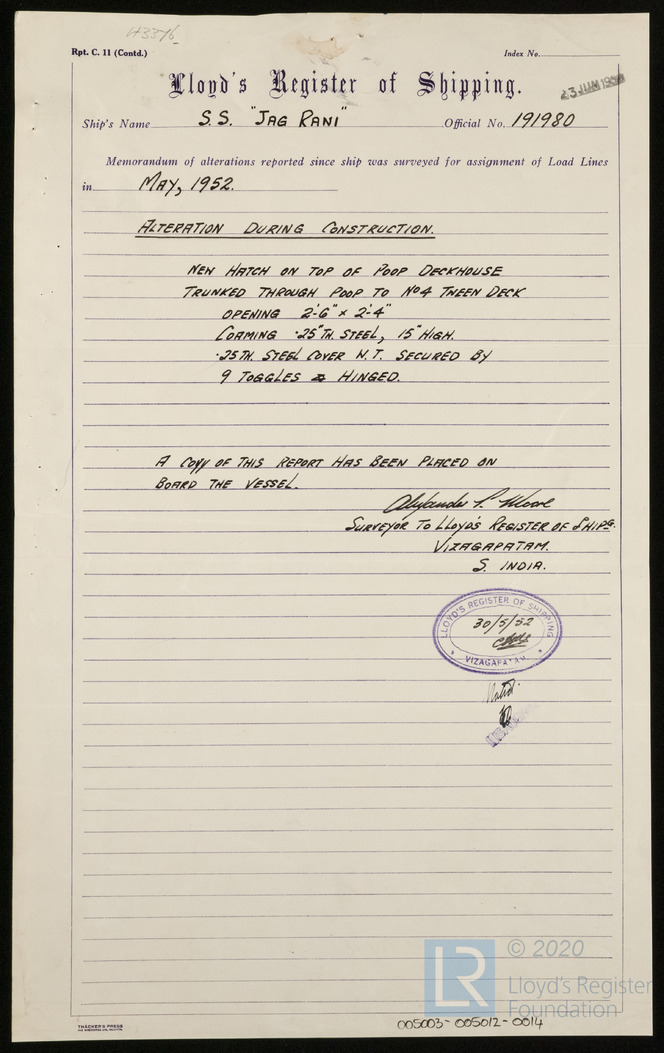 43376
Rpt. C. 11 (Contd.)
Index No.
Lloyd's Register of Shipping.
23 JUN 1952
Ship's Name S.S. "JAG RANI" Official No. 191980
Memorandum of alterations reported since ship was surveyed for assignment of Load Lines
in MAY, 1952.
ALTERATION DURING CONSTRUCTION.
NEW HATCH ON TOP OF POOP DECKHOUSE
TRUNKED THROUGH POOP TO No4 TWEEN DECK
OPENING 2'-6" × 2'-4"
COAMING .25" TH. STEEL, 15" HIGH.
.25 TH. STEEL COVER W.T. SECURED BY
9 TOGGLES & HINGED.
A COPY OF THIS REPORT HAS BEEN PLACED ON
BOARD THE VESSEL.
SURVEYOR TO LLOYD'S REGISTER OF SHIPG.
VIZAGAPATAM.
S. INDIA.
LLOYD'S REGISTER OF SHIPPING
30/5/52
VIZAGAPATAM
Noted
© 2020
LR
Lloyd's Register
Foundation
THACKER'S PRESS
005003-005012-0014